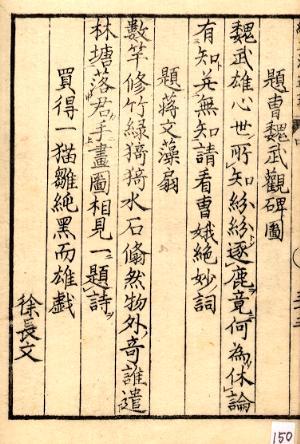 題曹魏武觀碑圖
魏武雄心世所知紛紛逐鹿竟何為休論
有知并無知請看曹娥絶妙詞
題蔣文藻扇
數竿修竹綠猗猗水石翛然物外奇誰遣
林塘落君手畫圖相見一題詩
買得一猫雛純黒而雄戯
徐長文
150